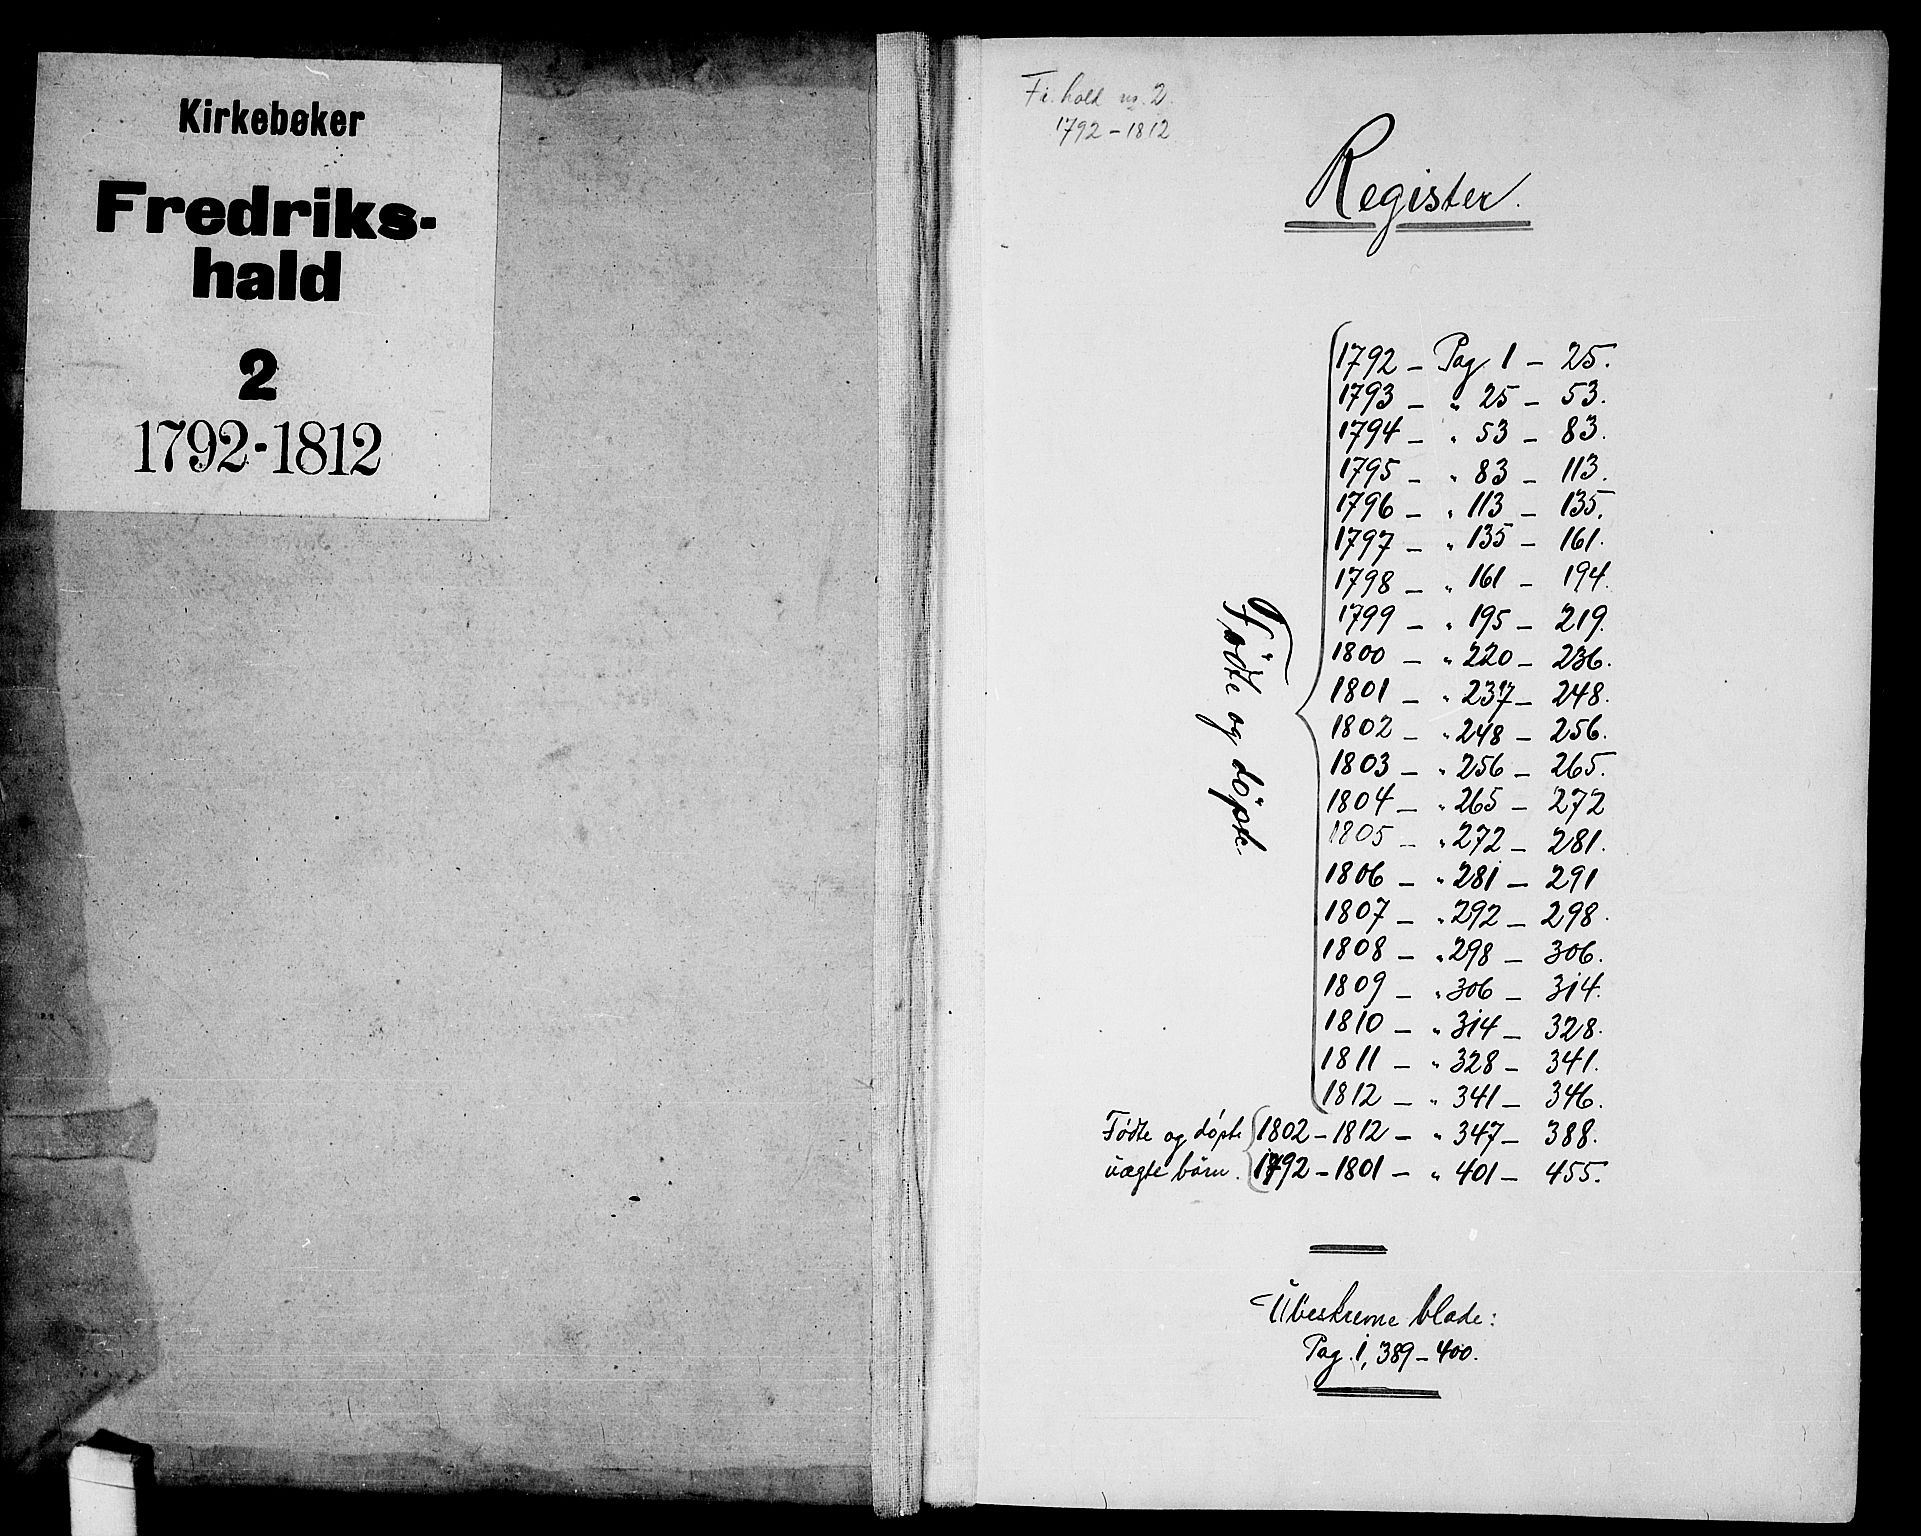 Kirkebøker
Fredriks-
hald
2
1792-1812
Fr. hald nr. 2.
1792 - 1812
Register.
Fødte og döpte.
1792 - Pag 1 - 25.
1793 - " 25 - 53.
1794 - " 53 - 83.
1795 - " 83 - 113.
1796 - " 113 - 135.
1797 - " 135 - 161.
1798 - " 161 - 194.
1799 - " 195 - 219.
1800 - " 220 - 236.
1801 - " 237 - 248.
1802 - " 248 - 256.
1803 - " 256 - 265.
1804 - " 265 - 272
1805 - " 272 - 281.
1806 - " 281 - 291
1807 - " 292 - 298.
1808 - " 298 - 306.
1809 - " 306 - 314.
1810 - " 314 - 328.
1811 - " 328 - 341.
1812 - " 341 - 346.
Födte og döpte 1802 - 1812 - " 347 - 388.
uægte börn. 1792 - 1801 - " 401 - 455.
Ubeskrevne blade:
Pag. 1, 389 - 400.